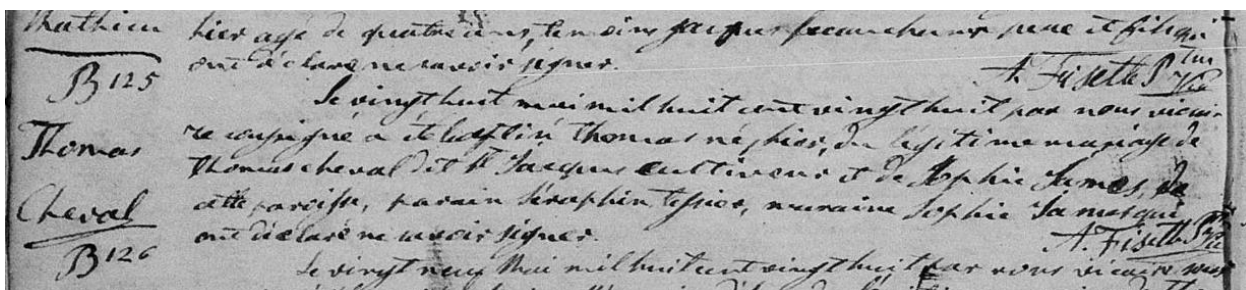 Mathieu
hier agé de quatre ans, temoins jacques beauchamp pere et fils qui
ont déclaré ne savoir signer.
A. Fisette Ptre
Vic
B 125
Le vingt huit mai mil huit cent vingt huit, par nous vicai-
Thomas
re soussigné a été baptisé Thomas né hier, du légitime mariage de
Thomas cheval dit St Jacques cultivateur et de Sophie James, de
Cheval
cette paroisse, parain Séraphin tessier, maraine Sophie James qui
ont déclaré ne savoir signer.
A. Fisette Ptre
Vic
B 126
Le vingt neuf Mai mil huit cent vingt huit par nous vicaire sous